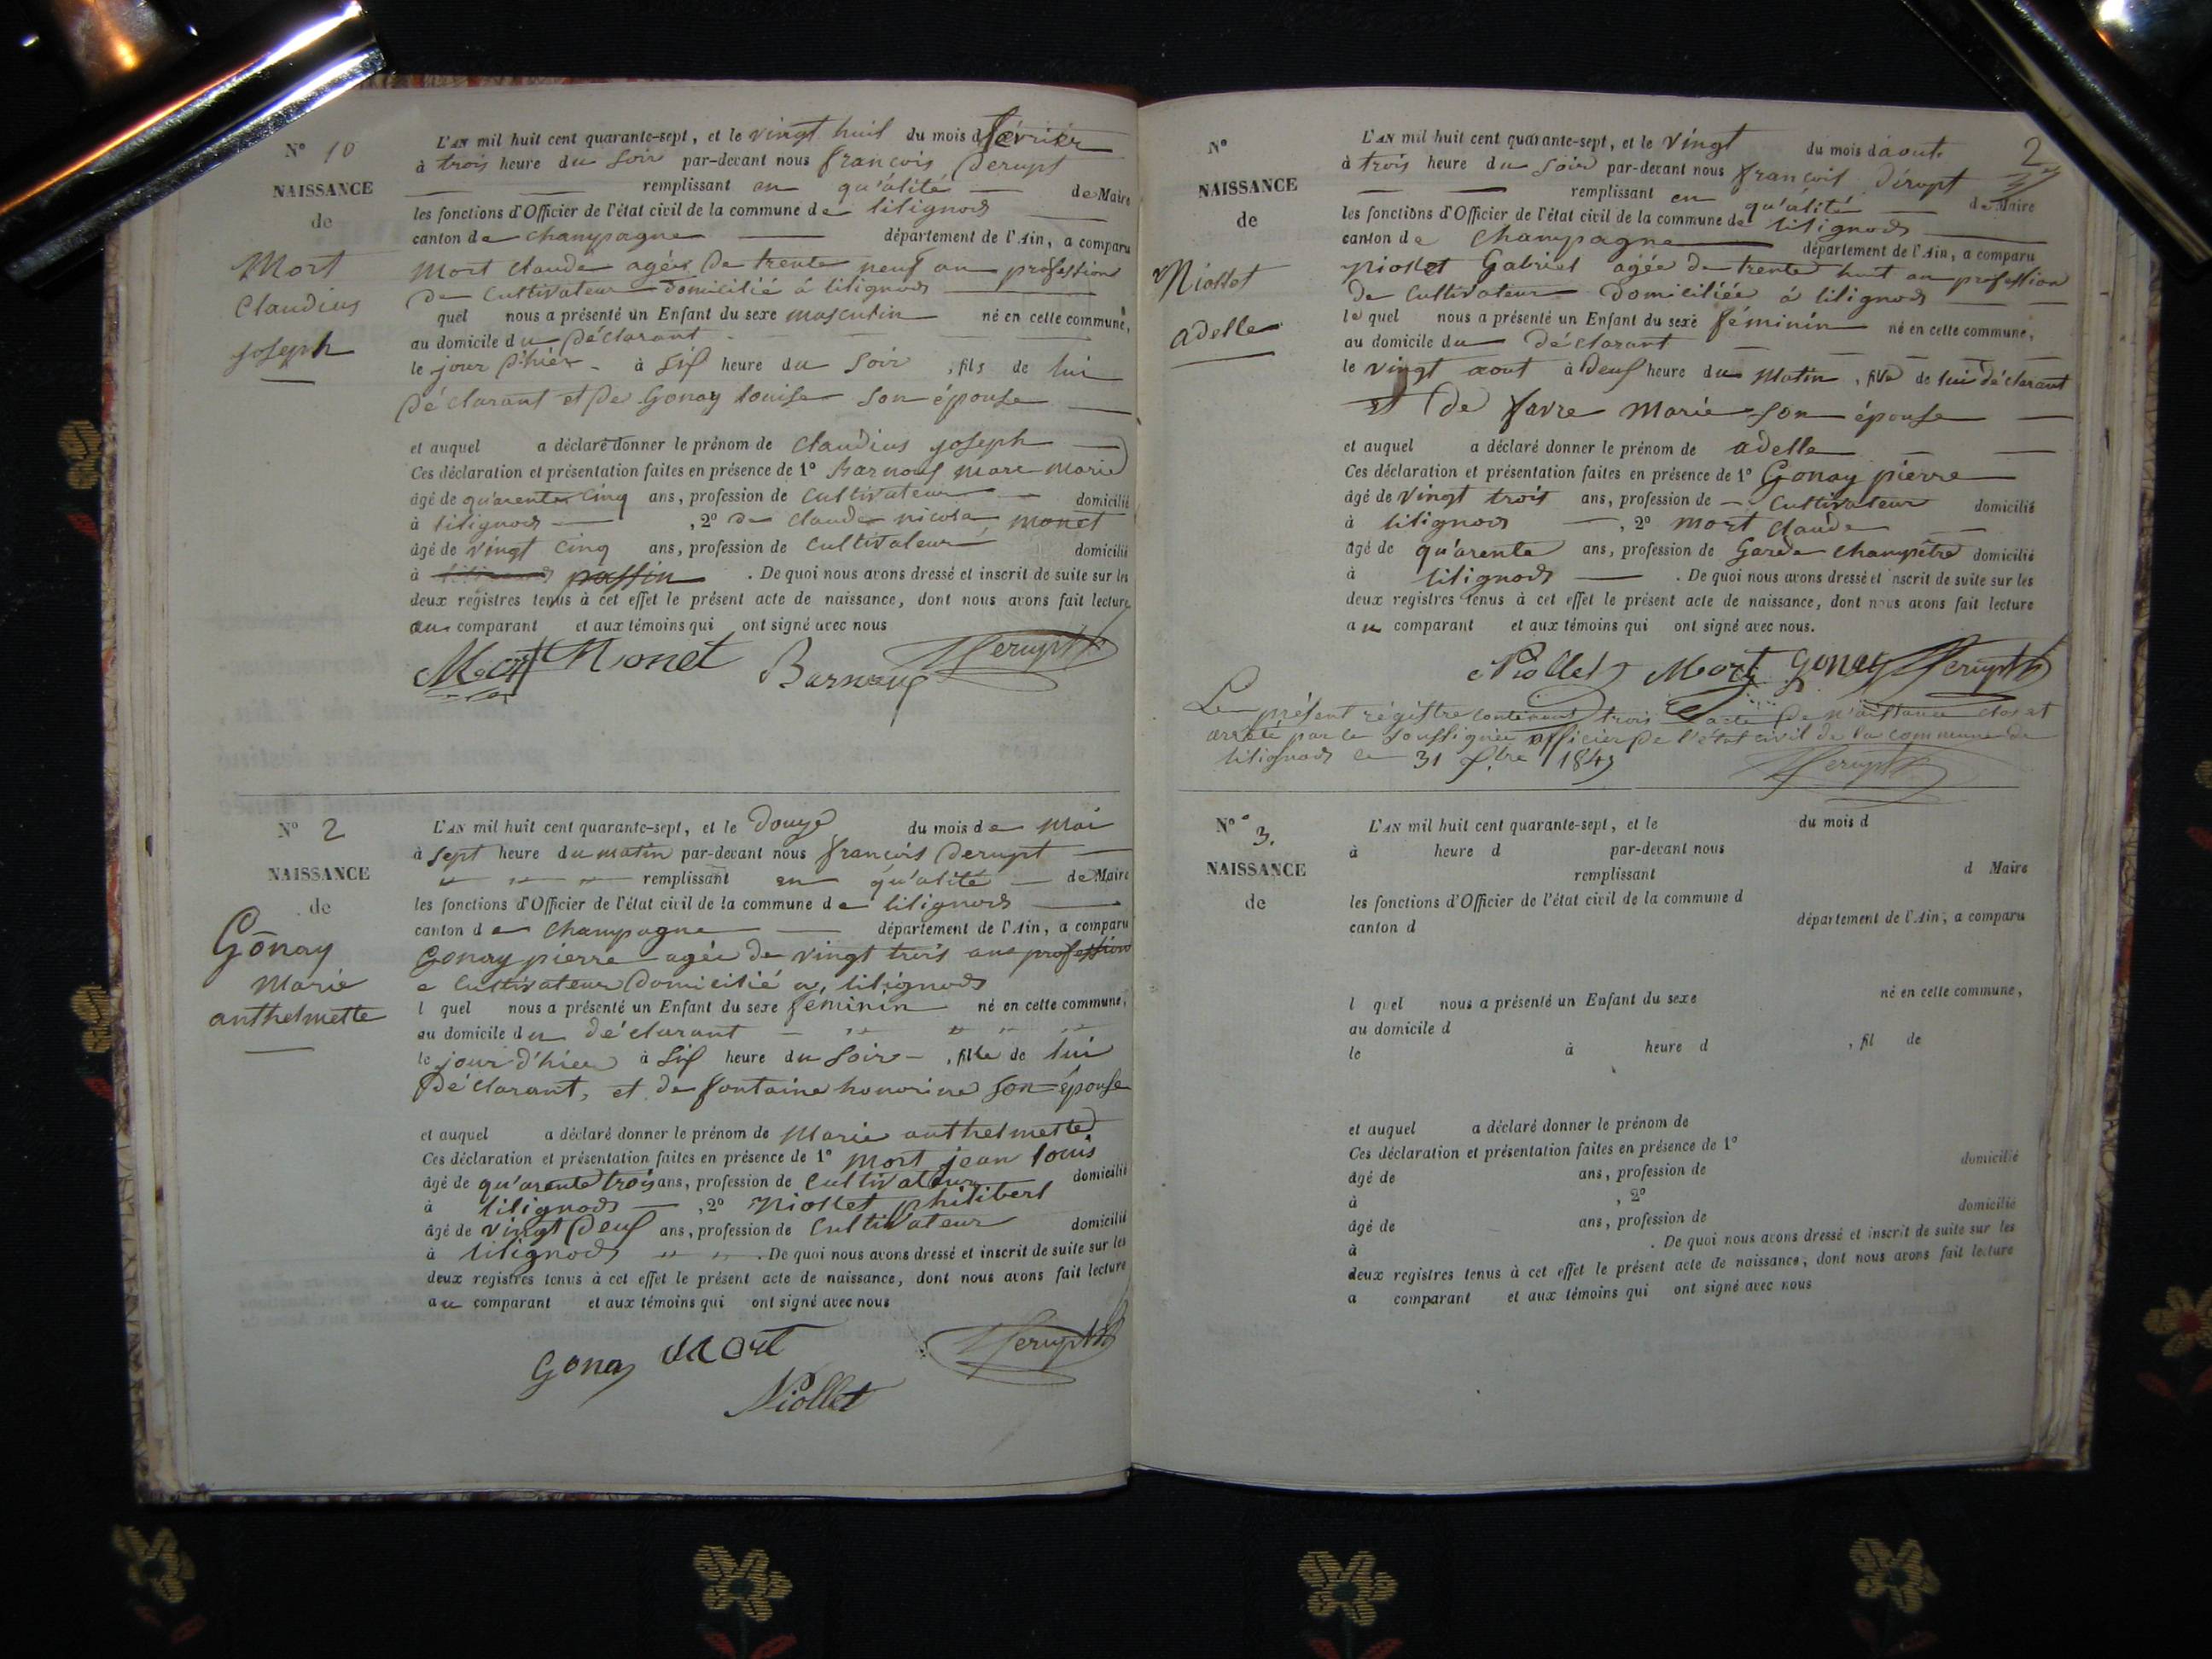 N° 10
NAISSANCE
de
Mort
Claudius
joseph
L'AN mil huit cent quarante-sept, et le vingt huit du mois d février
à trois heure du soir par-devant nous françois Derupt
remplissant en qu'alité de Maire
les fonctions d'Officier de l'état civil de la commune de lilignods
canton de champagne département de l'Ain, a comparu
Mort claude agée De trente neuf an profession
De Cultivateur Domicilié à lilignods
quel nous a présenté un Enfant du sexe masculin né en cette commune,
au domicile du Déclarant
le jour D'hier à Six heure du Soir, fils de lui
Déclarant et De Gonay louise Son épouse
et auquel a déclaré donner le prénom de Claudius joseph
Ces déclaration et présentation faites en présence de 1° Barnouf marc marie
âgé de qu'arente cinq ans, profession de Cultivateur domicilié
à lilignods, 2° de claude nicola monet
âgé de vingt cinq ans, profession de Cultivateur domicilié
à passin. De quoi nous avons dressé et inscrit de suite sur les
deux registres tenus à cet effet le présent acte de naissance, dont nous avons fait lecture
au comparant et aux témoins qui ont signé avec nous
Mort Monet Barnouf Derupt
N° 2
NAISSANCE
de
Gonay
Marie
anthelmette
L'AN mil huit cent quarante-sept, et le Douze du mois de Mai
à Sept heure du matin par-devant nous françois Derupt
remplissant en qu'alité de Maire
les fonctions d'Officier de l'état civil de la commune de lilignods
canton de Champagne département de l'Ain, a comparu
Gonay pierre agée De vingt trois ans profession
e Cultivateur Domicilié a, lilignods
l quel nous a présenté un Enfant du sexe féminin né en cette commune,
au domicile du déclarant
le jour d'hier à Six heure du Soir, fille de lui
Déclarant, et De fontaine honorine Son épouse
et auquel a déclaré donner le prénom de Marie anthelmette
Ces déclaration et présentation faites en présence de 1° Mort jean louis
âgé de qu'arente trois ans, profession de Cultivateur domicilié
à lilignods, 2° Niollet philibert
âgé de vingt Deux ans, profession de Cultivateur domicilié
à lilignods. De quoi nous avons dressé et inscrit de suite sur les
deux registres tenus à cet effet le présent acte de naissance, dont nous avons fait lecture
au comparant et aux témoins qui ont signé avec nous
Gonay Mort Derupt
Niollet
2
N°
NAISSANCE
de
Niollet
adelle
L'AN mil huit cent quarante-sept, et le vingt du mois d aout
à trois heure du Soir par-devant nous françois Dérupt
remplissant en qu'alité de Maire
les fonctions d'Officier de l'état civil de la commune de lilignods
canton de Champagne département de l'Ain, a comparu
Niollet Gabriel agée de trente huit an profession
De Cultivateur Domiciliée à lilignods
le quel nous a présenté un Enfant du sexe féminin né en cette commune,
au domicile du Déclarant
le vingt aout à Deux heure du Matin, fille de lui déclarant
et De favre Marie Son épouse
et auquel a déclaré donner le prénom de adelle
Ces déclaration et présentation faites en présence de 1° Gonay pierre
âgé de vingt trois ans, profession de Cultivateur domicilié
à lilignods, 2° Mort claude
âgé de qu'arente ans, profession de Garde Champêtre domicilié
à lilignods. De quoi nous avons dressé et inscrit de suite sur les
deux registres tenus à cet effet le présent acte de naissance, dont nous avons fait lecture
au comparant et aux témoins qui ont signé avec nous.
Niollet Mort Gonay Derupt
Le présent régistre contenant trois acte De n'aissance clos et
arrêté par le Soussignée officier De l'état civil de la commune de
lilignods le 31 Xbre 1847
Derupt
N° 3.
NAISSANCE
de
L'AN mil huit cent quarante-sept, et le du mois d
à heure d par-devant nous
remplissant d Maire
les fonctions d'Officier de l'état civil de la commune d
canton d département de l'Ain, a comparu
l quel nous a présenté un Enfant du sexe né en cette commune,
au domicile d
le à heure d, fil de
et auquel a déclaré donner le prénom de
Ces déclaration et présentation faites en présence de 1°
âgé de ans, profession de domicilié
à, 2°
âgé de ans, profession de domicilié
à. De quoi nous avons dressé et inscrit de suite sur les
deux registres tenus à cet effet le présent acte de naissance, dont nous avons fait lecture
a comparant et aux témoins qui ont signé avec nous